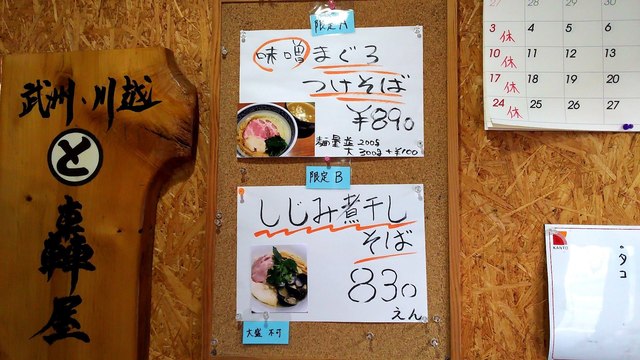 武州・川越
と
轟屋
限定A
味噌まぐろ
つけそば
¥890
麺量並200g
大300g+¥100
限定 B
しじみ煮干し
そば
830
えん
大盛 不可
27 28 29 30
3 休 4 5 6
10 休 11 12 13
17 休 18 19 20
24 休 25 26 27
KANTO
タコ